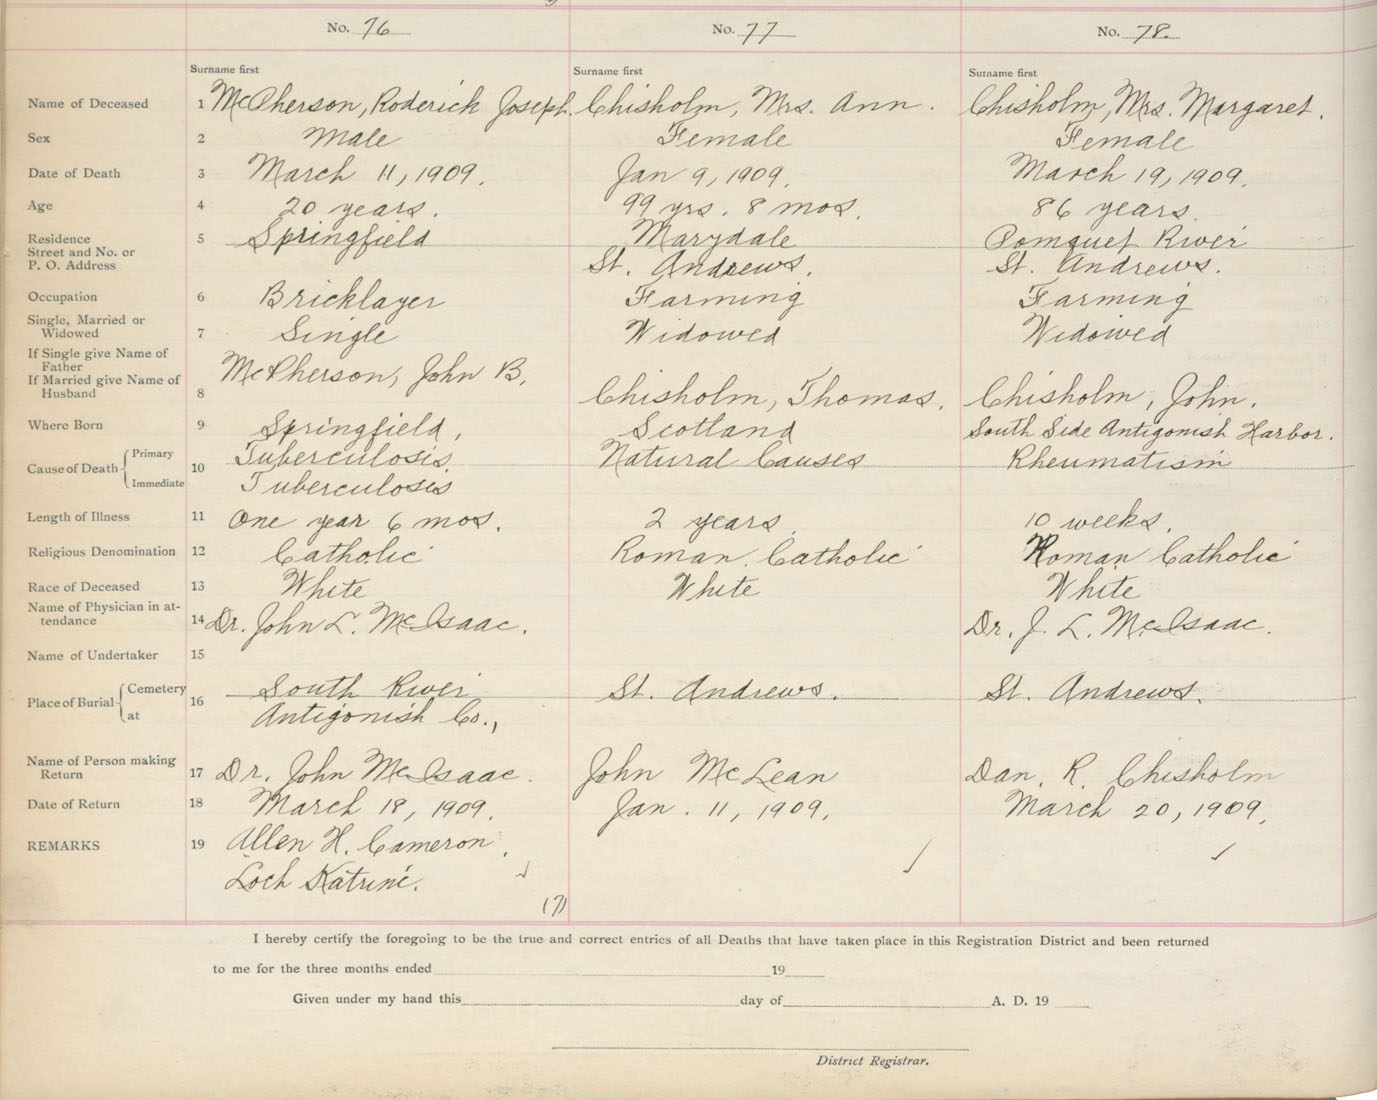 No. 76 No. 77 No. 78.
Surname first Surname first Surname first
Name of Deceased 1 McPherson, Roderick Joseph. Chisholm, Mrs. Ann. Chisholm, Mrs. Margaret.
Sex 2 Male Female Female
Date of Death 3 March 11, 1909. Jan 9, 1909. March 19, 1909.
Age 4 20 years. 99 yrs. 8 mos. 86 years.
Residence 5 Springfield Marydale Pomquet River
Street and No. or
P. O. Address St. Andrews. St. Andrews.
Occupation 6 Bricklayer Farming Farming
Single, Married or
Widowed 7 Single Widowed Widowed
If Single give Name of
Father McPherson, John B.
If Married give Name of
Husband 8 Chisholm, Thomas. Chisholm, John.
Where Born 9 Springfield, Scotland South Side Antigonish Harbor.
Cause of Death Primary 10 Tuberculosis. Natural Causes Rheumatism
Immediate Tuberculosis
Length of Illness 11 One year 6 mos. 2 years. 10 weeks.
Religious Denomination 12 Catholic Roman Catholic Roman Catholic
Race of Deceased 13 White White White
Name of Physician in at-
tendance 14 Dr. John L. McIsaac. Dr. J. L. McIsaac.
Name of Undertaker 15
Place of Burial Cemetery 16 South River St. Andrews. St. Andrews.
at Antigonish Co.,
Name of Person making
Return 17 Dr. John McIsaac. John McLean Dan. R. Chisholm
Date of Return 18 March 18, 1909. Jan. 11, 1909. March 20, 1909.
REMARKS 19 Allen H. Cameron,
Loch Katrine.
(7)
I hereby certify the foregoing to be the true and correct entries of all Deaths that have taken place in this Registration District and been returned
to me for the three months ended 19
Given under my hand this day of A. D. 19
District Registrar.